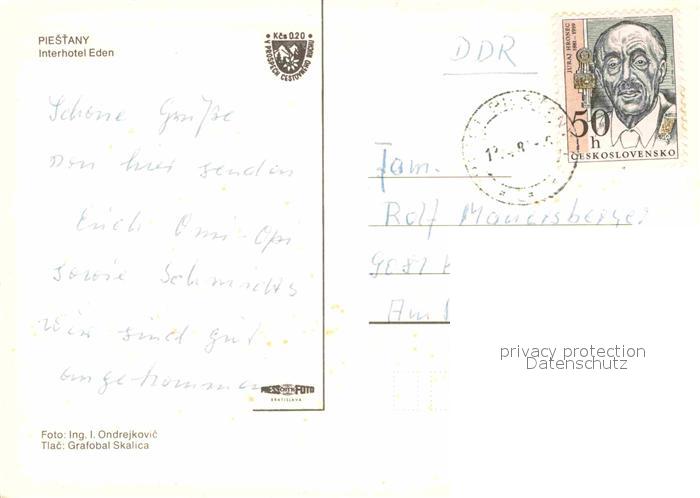 PIEŠŤANY
Interhotel Eden
Kčs 0.20
V PROSPECH CESTOVNÉHO RUCHU
DDR
JURAJ HRONEC
1881-1959
50
h
ČESKOSLOVENSKO
Schöne Grüße
von hier senden
Erich Omi-Opi
sowie Schmidts
Wir sind gut
angekommen
Fam.
Rolf Mauersberger
Am
privacy protection
Datenschutz
PRESSFOTO
BRATISLAVA
Foto: Ing. I. Ondrejkovič
Tlač: Grafobal Skalica